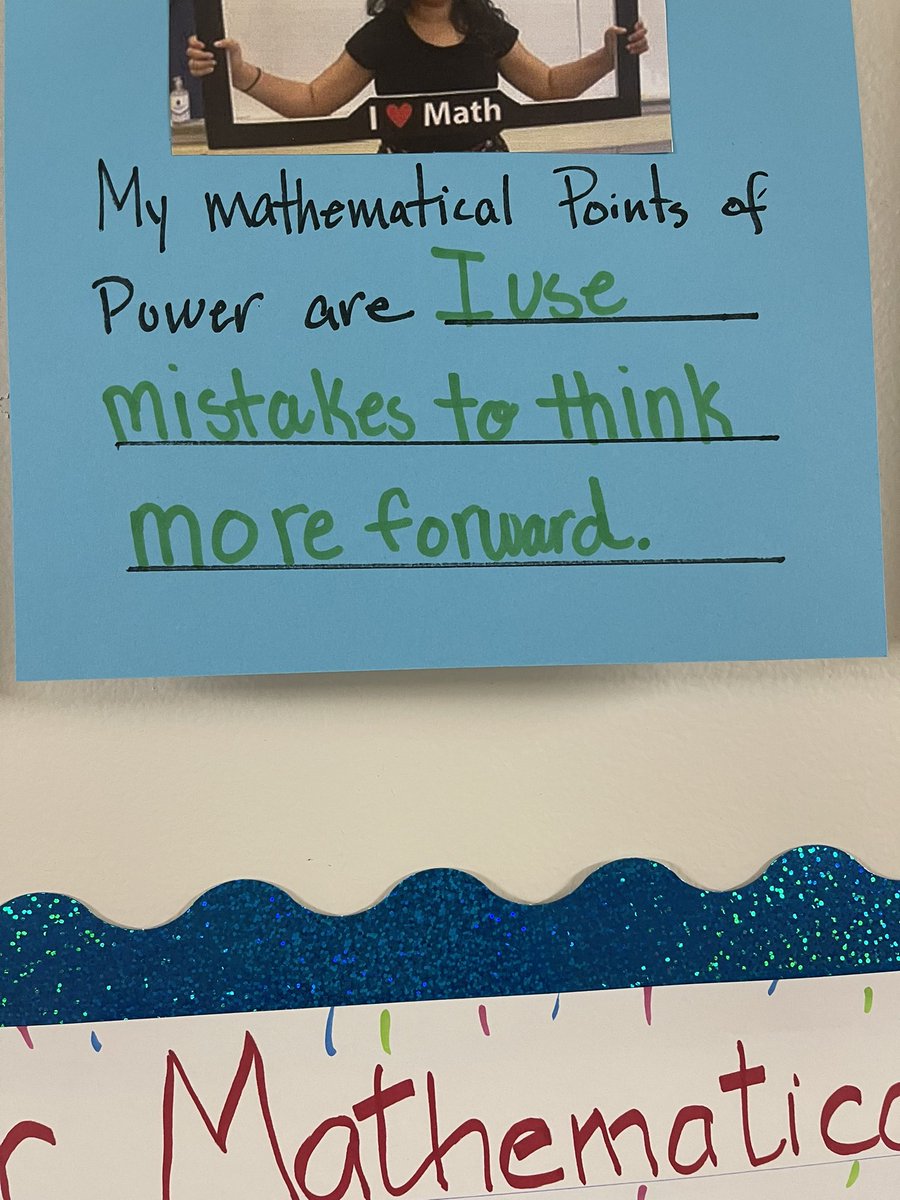 I ❤ Math
My mathematical Points of
Power are I use
mistakes to think
more forward.
r Mathematica